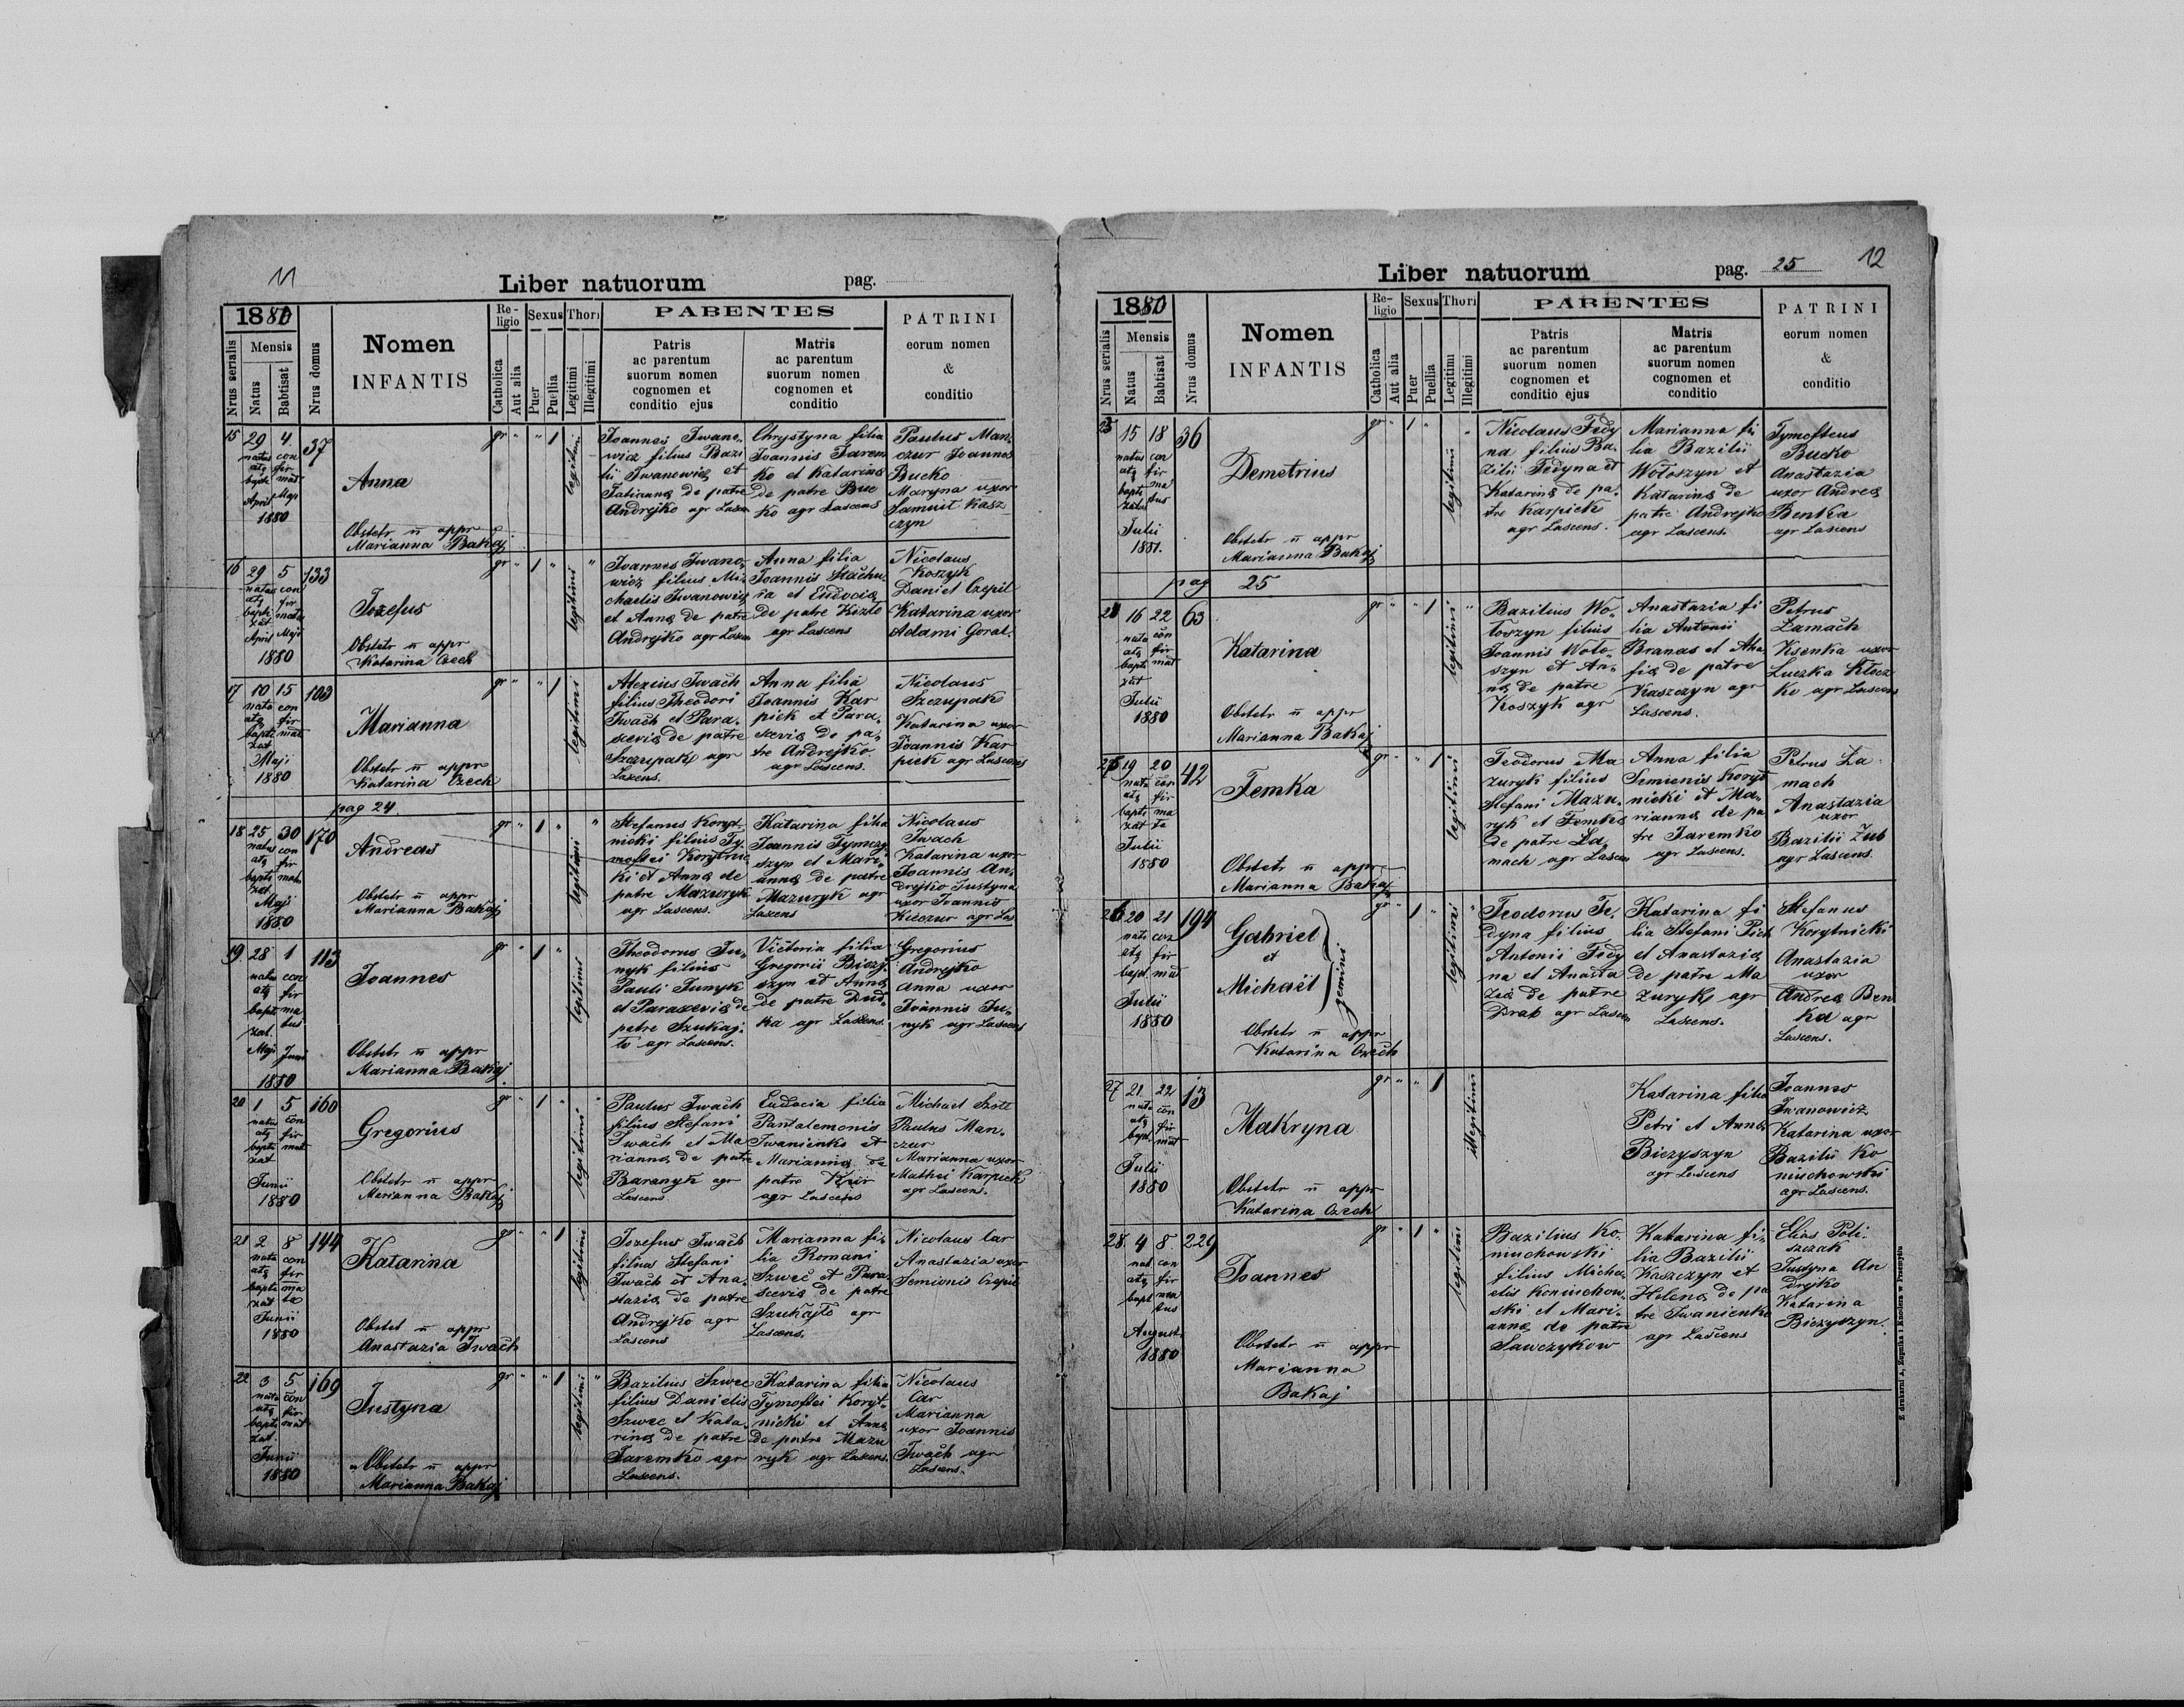 11
Liber natuorum pag.
1880
Nrus serialis
Mensis
Natus
Babtisat
Nrus domus
Nomen
INFANTIS
Re-
ligio
Catholica
Aut alia
Sexus
Puer
Puellia
Thori
Legitimi
Illegitimi
PARENTES
Patris
ac parentum
suorum nomen
cognomen et
conditio ejus
Matris
ac parentum
suorum nomen
cognomen et
conditio
PATRINI
eorum nomen
&
conditio
15 29 4. 37
natus con
atq fir
bapti mat
April Maji
1880
Anna
Obstetr n appr
Marianna Bakaj
gr " " 1
legitimi
Joannes Iwano-
wicz filius Bazi
lii Iwanowicz et
Tatianna de patre
Andrejko agr Lascen
Chrystyna filia
Joannis Jarem
ko et Katarina
de patre Buc
ko agr Lascens
Paulus Man-
czur Joannes
Bucko
Maryna uxor
Samuil Kasz
czyn
16 29 5 133
natus con
atq fir
bapti matu
zat
April Maji
1880
Jozefus
Obstetr n appr
Katarina Czech
gr " 1 " "
legitimi
Joannes Iwano-
wicz filius Mi-
chaelis Iwanowicz
et Anna de patre
Andrejko agr Lascen
Anna filia
Joannis Stachu-
ra et Eudocia
de patre Kizlo
agr Lascens
Nicolaus
Koszyk
Daniel Czepil
Katarina uxor
Adami Goral.
17 10 15 103
nata con
atq fir
bapti mat
zat
Maji
1880
Marianna
Obstetr n appr
Katarina Czech
gr " " 1
legitimi
Alexius Iwach
filius Theodori
Iwach et Para-
scevia de patre
Szczupak agr
Lascens.
Anna filia
Joannis Kar
piek et Para-
scevia de pa-
tre Andrejko
agr Lascens.
Nicolaus
Szczupak
Katarina uxor
Joannis Kar
piek agr Lascens
pag 24.
18 25 30 170
natus con
atq fir
bapti matu
zat
Maji
1880
Andreas
Obstetr n appr
Marianna Bakaj
gr " 1 " "
legitimi
Stefanus Koryt-
nicki filius Ty-
moftei Korytnic
ki et Anna de
patre Mazuryk
agr Lascens.
Katarina filia
Joannis Tymczy
szyn et Mari-
anna de patre
Mazuryk agr
Lascens
Nicolaus
Iwach
Katarina uxor
Joannis An-
drejko Justyna
uxor Joannis
Kiczur agr Las
19. 28 1 113
natus con
atq fir
bapti ma
zat. tus
Maji Junii
1880
Joannes
Obstetr n appr
Marianna Bakaj
gr " 1 "
legitimi
Theodorus Ju-
nyk filius
Pauli Junyk
et Parascevia de
patre Szukaj-
to agr Lascens.
Victoria filia
Gregorii Biczy-
szyn et Anna
de patre Dud-
ka agr Lascens.
Gregorius
Andrejko
Anna uxor
Joannis Ju-
nyk agr Lascens
20 1 5 160
natus con
atq fir
bapti mat
zat
Junii
1880
Gregorius
Obstetr n appr
Marianna Bakaj
gr " 1 " "
legitimi
Paulus Iwach
filius Stefani
Iwach et Ma
rianna de patre
Baranyk agr
Lascens.
Eudocia filia
Pantalemonis
Iwanienko et
Marianna de
patre Kuir
agr Lascens
Michael Szott
Paulus Man-
czur
Marianna uxor
Mathei Karpiek
agr Lascens.
21 2 8 144
nata con
atq fir
bapti ma
zat ta
Junii
1880
Katarina
Obstet n appr
Anastazia Iwach
gr " " 1
legitimi
Jozefus Iwach
filius Stefani
Iwach et Ana-
stazia de patre
Andrejko agr
Lascens
Marianna fi-
lia Romani
Szwec et Para-
scevia de patre
Szukajto agr
Lascens.
Nicolaus Car
Anastazia uxor
Semionis Czepil
22 3 5 169
nata con
atq fir
bapti mat
zat.
Junii
1880
Justyna
Obstetr n appr
Marianna Bakaj
gr " " 1 "
legitimi
Bazilius Szwec
filius Danielis
Szwec et Kata-
rina de patre
Jaremko agr
Lascens.
Katarina filia
Tymoftei Koryt-
nicki et Anna
de patre Mazu
ryk agr Lascens.
Nicolaus
Car
Marianna
uxor Joannis
Iwach agr
Lascens.
12
Liber natuorum pag. 25
1880
Nrus serialis
Mensis
Natus
Babtisat
Nrus domus
Nomen
INFANTIS
Re-
ligio
Catholica
Aut alia
Sexus
Puer
Puellia
Thori
Legitimi
Illegitimi
PARENTES
Patris
ac parentum
suorum nomen
cognomen et
conditio ejus
Matris
ac parentum
suorum nomen
cognomen et
conditio
PATRINI
eorum nomen
&
conditio
23 15 18 36
natus con
atq fir
bapti ma
zatus tus
Julii
1881.
Demetrius
Obstetr n appr
Marianna Bakaj
gr " 1 " "
legitimi
Nicolaus Fedy
na filius Ba-
zilii Fedyna et
Katarina de pa-
tre Karpiek
agr Lascens.
Marianna fi
lia Bazilii
Wołoszyn et
Katarina de
patre Andrejko
agr Lascens.
Tymofteus
Bucko
Anastazia
uxor Andrea
Benka
agr Lascens
pag 25
24 16 22 63
nata con
atq fir
bapti mat
zat
Julii
1880
Katarina
Obstetr n appr
Marianna Bakaj
gr " " 1 "
legitimi
Bazilius Wo-
łoszyn filius
Joannis Woło-
szyn et An-
na de patre
Koszyk agr
Anastazia fi
lia Antonii
Branas et Aha
fia de patre
Kaszczyn agr
Lascens.
Petrus
Lamach
Ksenka uxor
Luczka Klocz
ko agr Lascens
25 19 20 42
nata con
atq fir
bapti ma
zat ta
Julii
1880
Femka
Obstetr n appr
Marianna Bakaj
gr " " 1 "
legitimi
Teodorus Ma
zuryk filius
Stefani Mazu-
ryk et Femka
de patre La-
mach agr Lascen
Anna filia
Semienis Koryt
nicki et Ma-
rianna de pa
tre Jaremko
agr Lascens.
Petrus La-
mach
Anastazia
uxor
Bazilii Zub
agr Lascens.
26 20 21 194
nati con
atq fir
bapt mat
Julii
1880
Gabriel
et
Michael
gemini
Obstetr n appr
Katarina Czech
gr " 1 " "
legitimi
Teodorus Fe-
dyna filius
Antonii Fedy
na et Anasta
zia de patre
Drak agr Lascen
Katarina fi
lia Stefani Piet
et Anastazia
de patre Ma
zuryk agr
Lascens.
Stefanus
Korytnicki
Anastazia
uxor
Andrea Ben
ka agr
Lascens.
27 21. 22 13
nata con
atq fir
bapt mat
Julii
1880
Makryna
Obstetr n appr
Katarina Czech
gr " " 1
illegitimi
Katarina filia
Petri et Anna
Biczyszyn
agr Lascens
Joannes
Iwanowicz
Katarina uxor
Bazilii Ko
niuchowski
agr Lascens.
28. 4 8. 229
nat con
atq fir
bapt ma
tus
August
1880
Joannes
Obstetr n appr
Marianna
Bakaj
gr " 1 "
legitimi
Bazilius Ko-
niuchowski
filius Micha-
elis Koniuchow-
ski et Mari-
anna de patre
Sawczykow
Katarina fi-
lia Bazilii
Kaszczyn et
Helena de pa
tre Iwanienko
agr Lascens
Elias Poli-
szczak
Justyna An
drejko
Katarina
Biczyszyn.
Z drukarni A. Żupnika i Knollera w Przemyślu